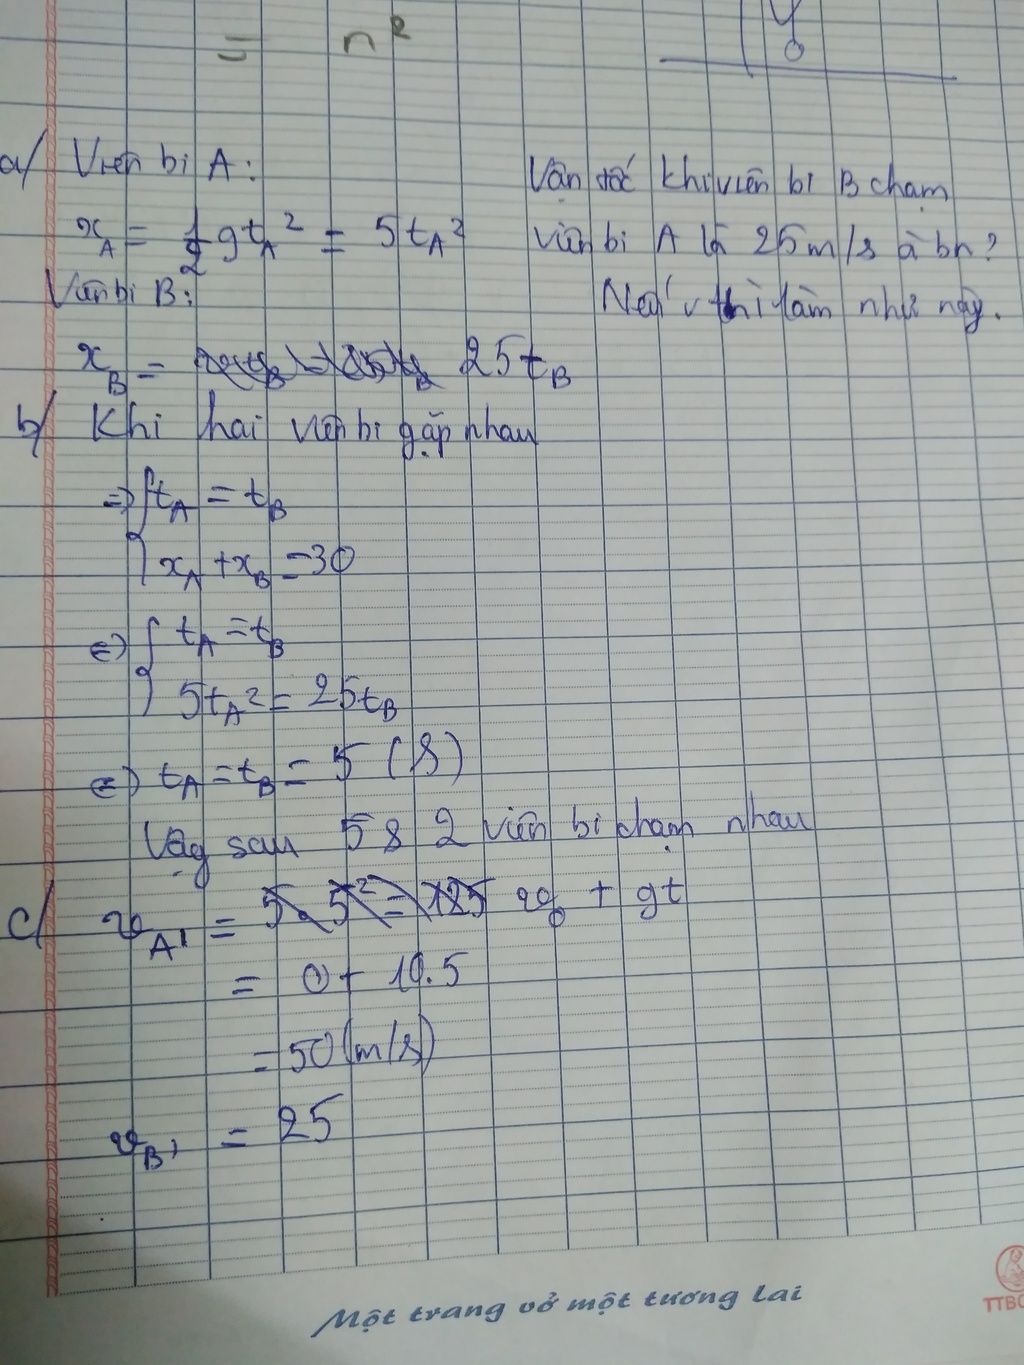 = n²
a/ Viên bi A:
x_A = 1/2 gt_A² = 5t_A²
Viên bi B:
x_B = 25t_B
Vận tốc khi viên bi B chạm
viên bi A là 25m/s à bn?
Nếu v thì làm như này.
b/ Khi hai viên bi gặp nhau
=> { t_A = t_B
x_A + x_B = 30
<=> { t_A = t_B
5t_A² = 25t_B
<=> t_A = t_B = 5 (s)
Vậy sau 5s 2 viên bi chạm nhau
c/ v_A' = 5.5² = 125 v₀ + gt
= 0 + 10.5
= 50 (m/s)
v_B' = 25
Một trang vở một tương lai